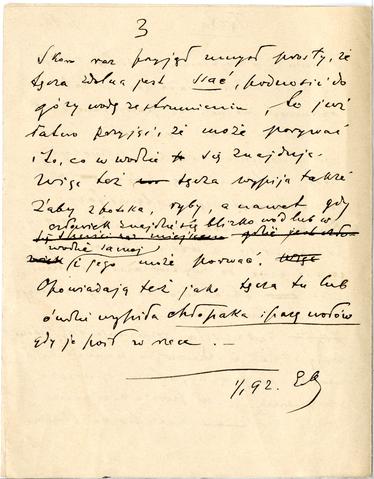 3
Skoro raz przyjął umysł prosty, że
tęcza zdolną jest ssać, podnosić do
góry wodę ze strumienia, to już
łatwo przyjąć, że może porywać
i to, co w wodzie się znajduje.
Więc też tęcza wypija także
żaby z potoka, ryby, a nawet gdy
człowiek znajdzie się blizko wód lub w
wodzie samej
i jego może porwać. Więc
Opowiadają też jako tęcza tu lub
ówdzie wypiła chłopaka i parę wołów
gdy je poił w rzece. —
1/1 92.